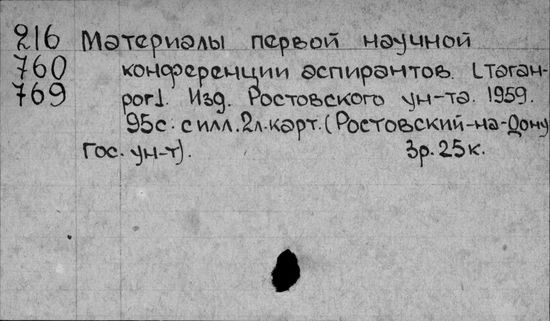 216 Материалы первой научной
760 конференции аспирантов. [Таган-
769 рог]. Изд. Ростовского ун-та. 1959.
95с. с илл. 2л. карт. (Ростовский-на-Дону
Гос. ун-т). 3р. 25к.